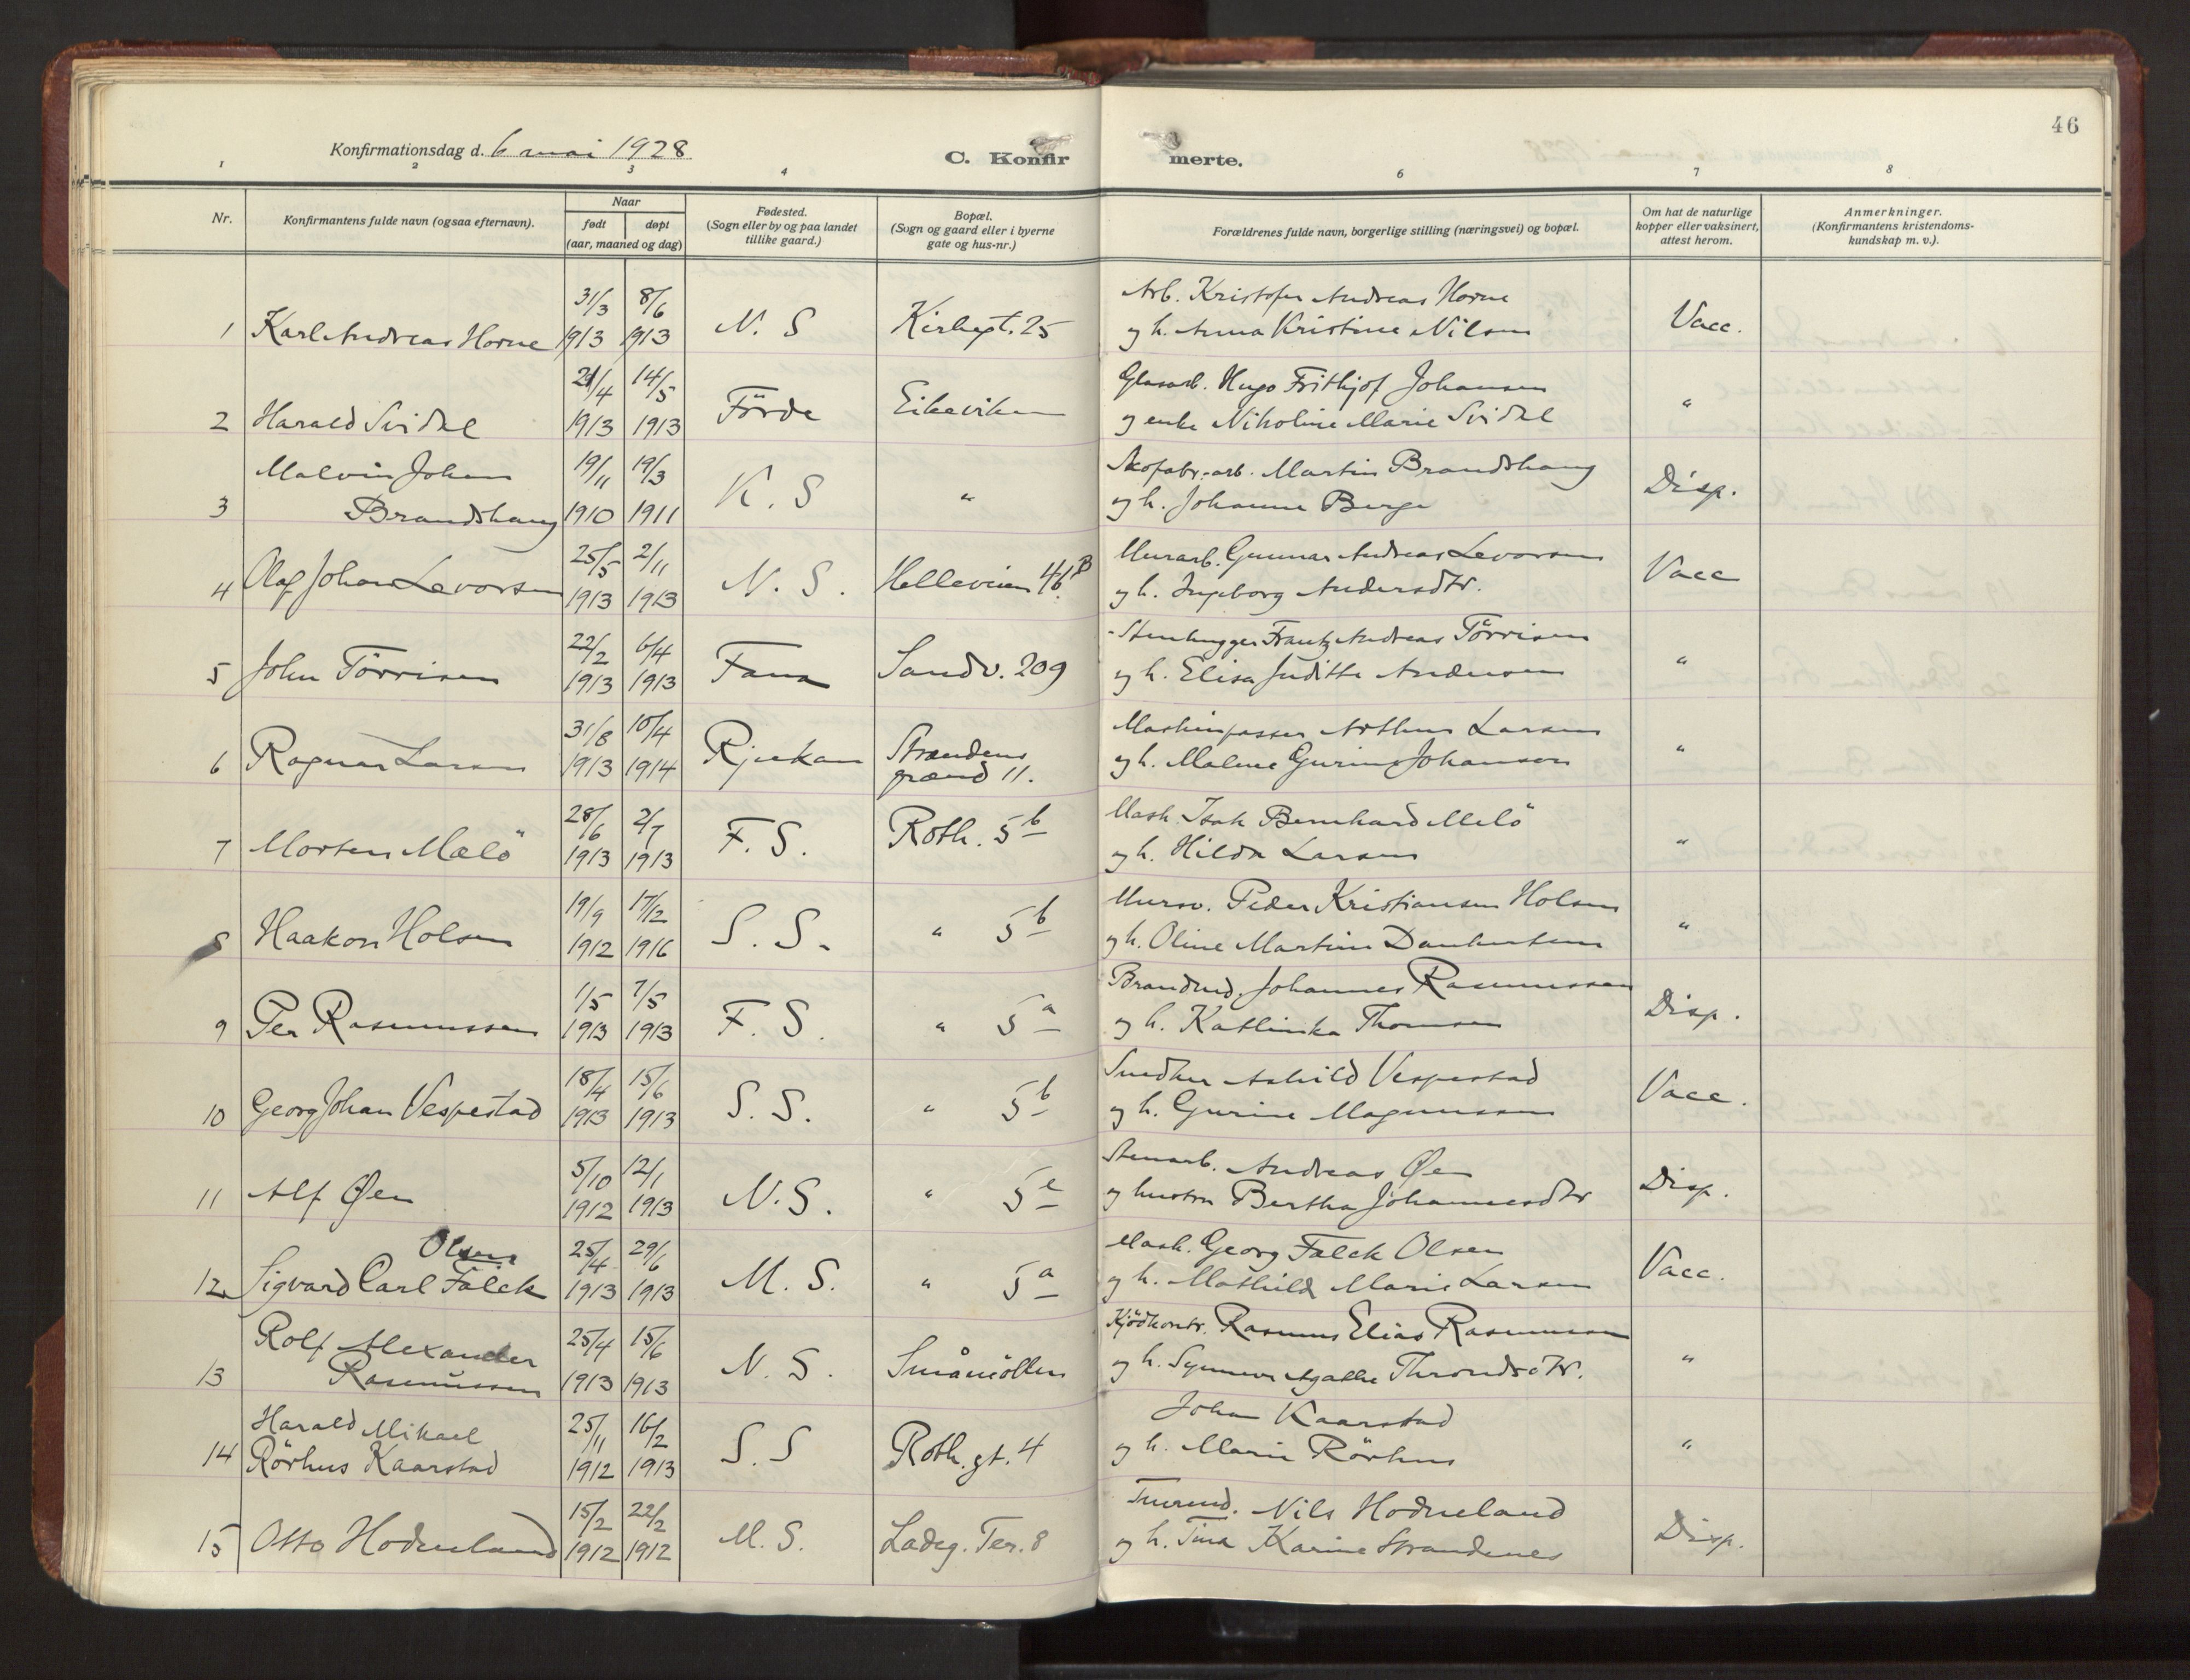 46
Konfirmationsdag d. 6 mai 1928
C. Konfir merte.
1 2 3 4 6 7 8
Nr.
Konfirmantens fulde navn (ogsaa efternavn).
Naar
født døpt
(aar, maaned og dag)
Fødested.
(Sogn eller by og paa landet
tillike gaard.)
Bopæl.
(Sogn og gaard eller i byerne
gate og hus-nr.)
Forældrenes fulde navn, borgerlige stilling (næringsvei) og bopæl.
Om hat de naturlige
kopper eller vaksinert,
attest herom.
Anmerkninger.
(Konfirmantens kristendoms-
kundskap m. v.).
31/3 8/6 Arb. Kristofer Andreas Horne
1 Karl Andreas Horne 1913 1913 N. S Kirkegt. 25 og h. Anna Kristine Nilsen Vacc.
21/4 14/5 Glasarb. Hugo Frithjof Johansen
2 Harald Svidal 1913 1913 Förde Eikeviken og enke Nikoline Marie Svidal "
Malvin Johan 19/11 19/3 Skofabr.-arb. Martin Brandshaug
3 Brandshaug 1910 1911 K. S " og h. Johanne Berge Disp.
25/5 2/11 Murarb. Gunnar Andreas Levorsen
4 Olaf Johan Levorsen 1913 1913 N. S. Helleveien 46 B og h. Ingeborg Andersdtr. Vacc
22/2 6/4 Stenhugger Frantz Andreas Törrisen
5 John Törrisen 1913 1913 Fana Sandv. 209 og h. Elisa Juditte Andersen "
31/8 10/4 Maskinpasser Arthur Larsen
6 Ragnar Larsen 1913 1914 Rjukan Strandens og h. Malene Gurine Johansen "
grænd 11.
28/6 2/7 Mask. Isak Bernhard Melö
7 Morten Mælö 1913 1913 F. S. Roth. 5 b og h. Hilda Larsen "
19/9 17/12 Mursv. Peder Kristiansen Holsen
8 Haakon Holsen 1912 1916 S. S. " 5 b og h. Oline Martine "
1/5 7/5 Johannes Rasmussen
9 Per Rasmussen 1913 1913 F. S. " 5 a og h. Kathinka Thomsen Disp.
18/4 15/6 Snedker Askild Vespestad
10 Georg Johan Vespestad 1913 1913 S. S. " 5 b og h. Gurine Magnussen Vacc.
5/10 12/1 Stenarb. Andreas Øen
11 Alf Øen 1912 1913 N. S. " 5 c og hustru Bertha Johannesdtr Disp.
Olsen 25/4 29/6 Mask. Georg Falck Olsen
12 Sigvard Carl Falck 1913 1913 M. S. " 5 a og h. Mathilde Marie Larsen Vacc.
Rolf Alexander 25/4 15/6 Kjödkontr. Rasmus Elias Rasmussen
13 Rasmussen 1913 1913 N. S. Småmöllen og h. Synnøve Agathe Throndsdtr. "
Harald Mikael 25/11 16/2 Johan Kaarstad
14 Rörhus Kaarstad 1912 1913 S. S Roth. gt. 4 og h. Marie Rörhus "
15/2 22/2 Nils Hodneland
15 Otto Hodneland 1912 1912 M. S. Ladeg. Ter. 8 og h. Tina Karine Strandenes Disp.